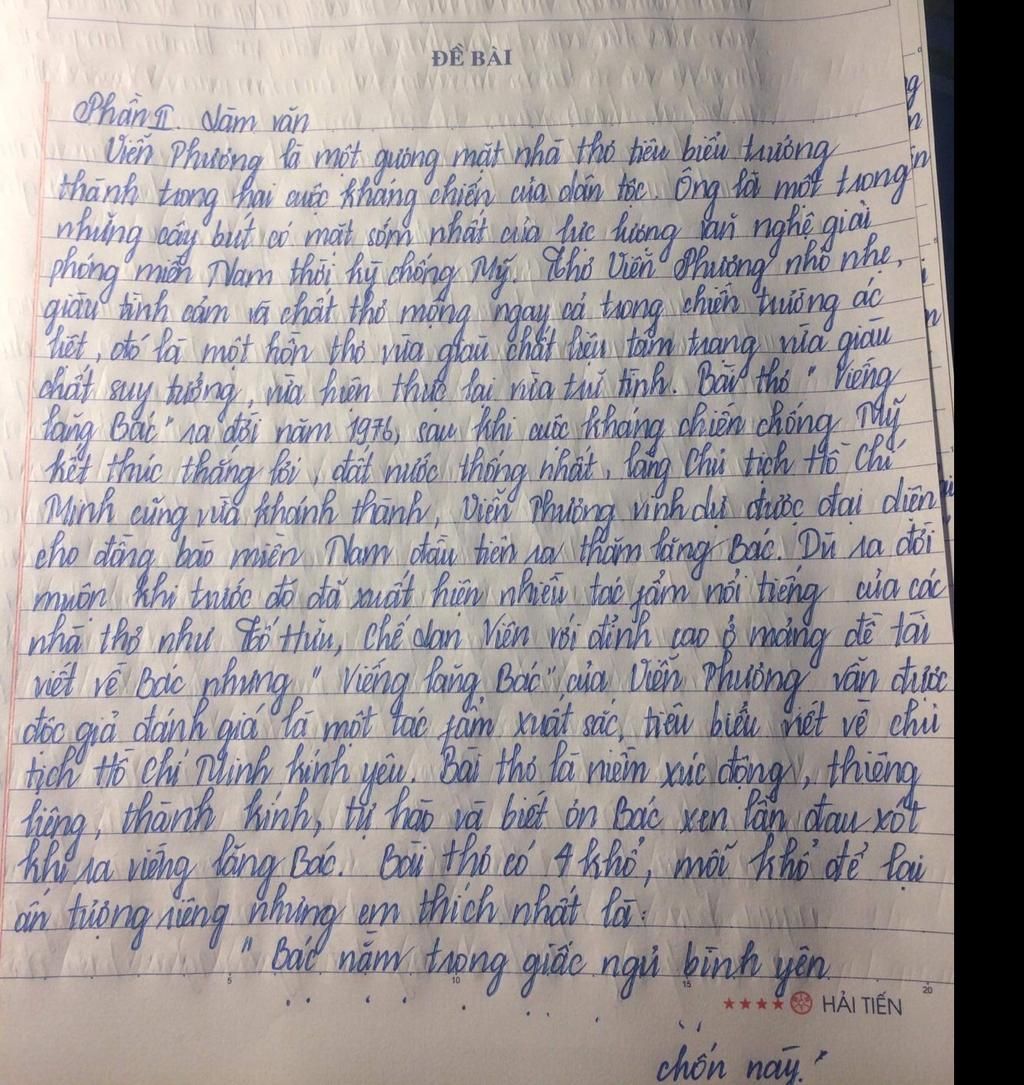 ĐỀ BÀI
Phần II. Làm văn
Viễn Phương là một gương mặt nhà thơ tiêu biểu trưởng
thành trong hai cuộc kháng chiến của dân tộc. Ông là một trong
những cây bút có mặt sớm nhất của lực lượng văn nghệ giải
phóng miền Nam thời kỳ chống Mỹ. Thơ Viễn Phương nhỏ nhẹ,
giàu tình cảm và chất thơ mộng ngay cả trong chiến trường ác
liệt, đó là một hồn thơ vừa giàu chất liệu tâm trạng vừa giàu
chất suy tưởng, vừa hiện thực lại vừa trữ tình. Bài thơ " Viếng
lăng Bác" ra đời năm 1976, sau khi cuộc kháng chiến chống Mỹ
kết thúc thắng lợi, đất nước thống nhất, lăng Chủ tịch Hồ Chí
Minh cũng vừa khánh thành, Viễn Phương vinh dự được đại diện
cho đồng bào miền Nam đầu tiên ra thăm lăng Bác. Dù ra đời
muộn khi trước đó đã xuất hiện nhiều tác fẩm nổi tiếng của các
nhà thơ như Tố Hữu, Chế Lan Viên với đỉnh cao ở mảng đề tài
viết về Bác nhưng " Viếng lăng Bác" của Viễn Phương vẫn được
độc giả đánh giá là một tác fẩm xuất sắc, tiêu biểu viết về chủ
tịch Hồ Chí Minh kính yêu. Bài thơ là niềm xúc động, thiêng
liêng, thành kính, tự hào và biết ơn Bác xen lẫn đau xót
khi ra viếng lăng Bác. Bài thơ có 4 khổ, mỗi khổ để lại
ấn tượng riêng nhưng em thích nhất là:
" Bác nằm trong giấc ngủ bình yên
5 10 15 20
★★★★ HẢI TIẾN
chốn này."